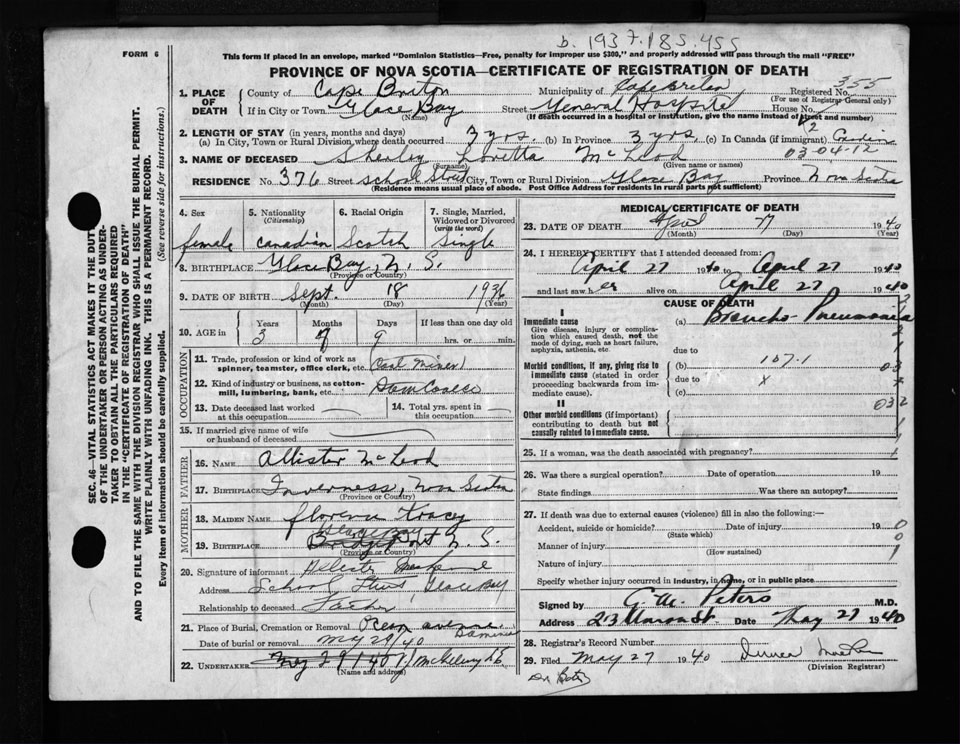 b. 1937.185.455
FORM 6
This form if placed in an envelope, marked "Dominion Statistics—Free, penalty for improper use $300," and properly addressed will pass through the mail "FREE"
PROVINCE OF NOVA SCOTIA—CERTIFICATE OF REGISTRATION OF DEATH
355
1. PLACE OF DEATH County of Cape Breton Municipality of Cape Breton Registered No.
(For use of Registrar General only)
If in City or Town Glace Bay Street General Hospital House No.
(Name) (If death occurred in a hospital or institution, give the name instead of street and number)
2. LENGTH OF STAY (in years, months and days)
(a) In City, Town or Rural Division where death occurred 3 yrs. (b) In Province 3 yrs. (c) In Canada (if immigrant) Canadian
03-04-12
3. NAME OF DECEASED Shirley Loretta McLeod
(Surname) (Given name or names)
RESIDENCE No. 376 Street School Street City, Town or Rural Division Glace Bay Province Nova Scotia
(Residence means usual place of abode. Post Office Address for residents in rural parts not sufficient)
4. Sex female
5. Nationality (Citizenship) Canadian
6. Racial Origin Scotch
7. Single, Married, Widowed or Divorced (write the word) Single
8. BIRTHPLACE Glace Bay, N. S.
(Province or Country)
9. DATE OF BIRTH Sept. 18 1936
(Month) (Day) (Year)
10. AGE in Years Months Days If less than one day old
3 7 9 hrs. or min.
OCCUPATION
11. Trade, profession or kind of work as spinner, teamster, office clerk, etc. Coal Miner
12. Kind of industry or business, as cotton-mill, lumbering, bank, etc.
13. Date deceased last worked at this occupation
14. Total yrs. spent in this occupation
15. If married give name of wife or husband of deceased
FATHER
16. NAME Allister McLeod
17. BIRTHPLACE Inverness, Nova Scotia
(Province or Country)
MOTHER
18. MAIDEN NAME Florence
19. BIRTHPLACE N. S.
(Province or Country)
20. Signature of informant
Address School Street, Glace Bay
Relationship to deceased Father
21. Place of Burial, Cremation or Removal Ocean Avenue
Date of burial or removal May 29/40
22. UNDERTAKER
MEDICAL CERTIFICATE OF DEATH
23. DATE OF DEATH April 27 1940
(Month) (Day) (Year)
24. I HEREBY CERTIFY that I attended deceased from:
April 27 1940 to April 27 1940
and last saw her alive on April 27 1940
CAUSE OF DEATH
I
Immediate cause (a) Broncho-Pneumonia
Give disease, injury or complication which caused death, not the mode of dying, such as heart failure, asphyxia, asthenia, etc.
due to
Morbid conditions, if any, giving rise to immediate cause (stated in order proceeding backwards from immediate cause).
(b) 107.1
due to x
(c)
II
Other morbid conditions (if important) contributing to death but not causally related to immediate cause.
032
25. If a woman, was the death associated with pregnancy?
26. Was there a surgical operation? Date of operation 19
State findings Was there an autopsy?
27. If death was due to external causes (violence) fill in also the following:—
Accident, suicide or homicide? Date of injury 19
(State which)
Manner of injury
(How sustained)
Nature of injury
Specify whether injury occurred in industry, in home, or in public place
Signed by C. M. Peters M.D.
Address 23 St. Date May 27 1940
28. Registrar's Record Number
29. Filed May 27 1940
(Division Registrar)
SEC. 46—VITAL STATISTICS ACT MAKES IT THE DUTY OF THE UNDERTAKER OR PERSON ACTING AS UNDERTAKER TO OBTAIN ALL THE PARTICULARS REQUIRED IN THE "CERTIFICATE OF REGISTRATION OF DEATH"
AND TO FILE THE SAME WITH THE DIVISION REGISTRAR WHO SHALL ISSUE THE BURIAL PERMIT.
WRITE PLAINLY WITH UNFADING INK. THIS IS A PERMANENT RECORD.
Every item of information should be carefully supplied. (See reverse side for instructions.)